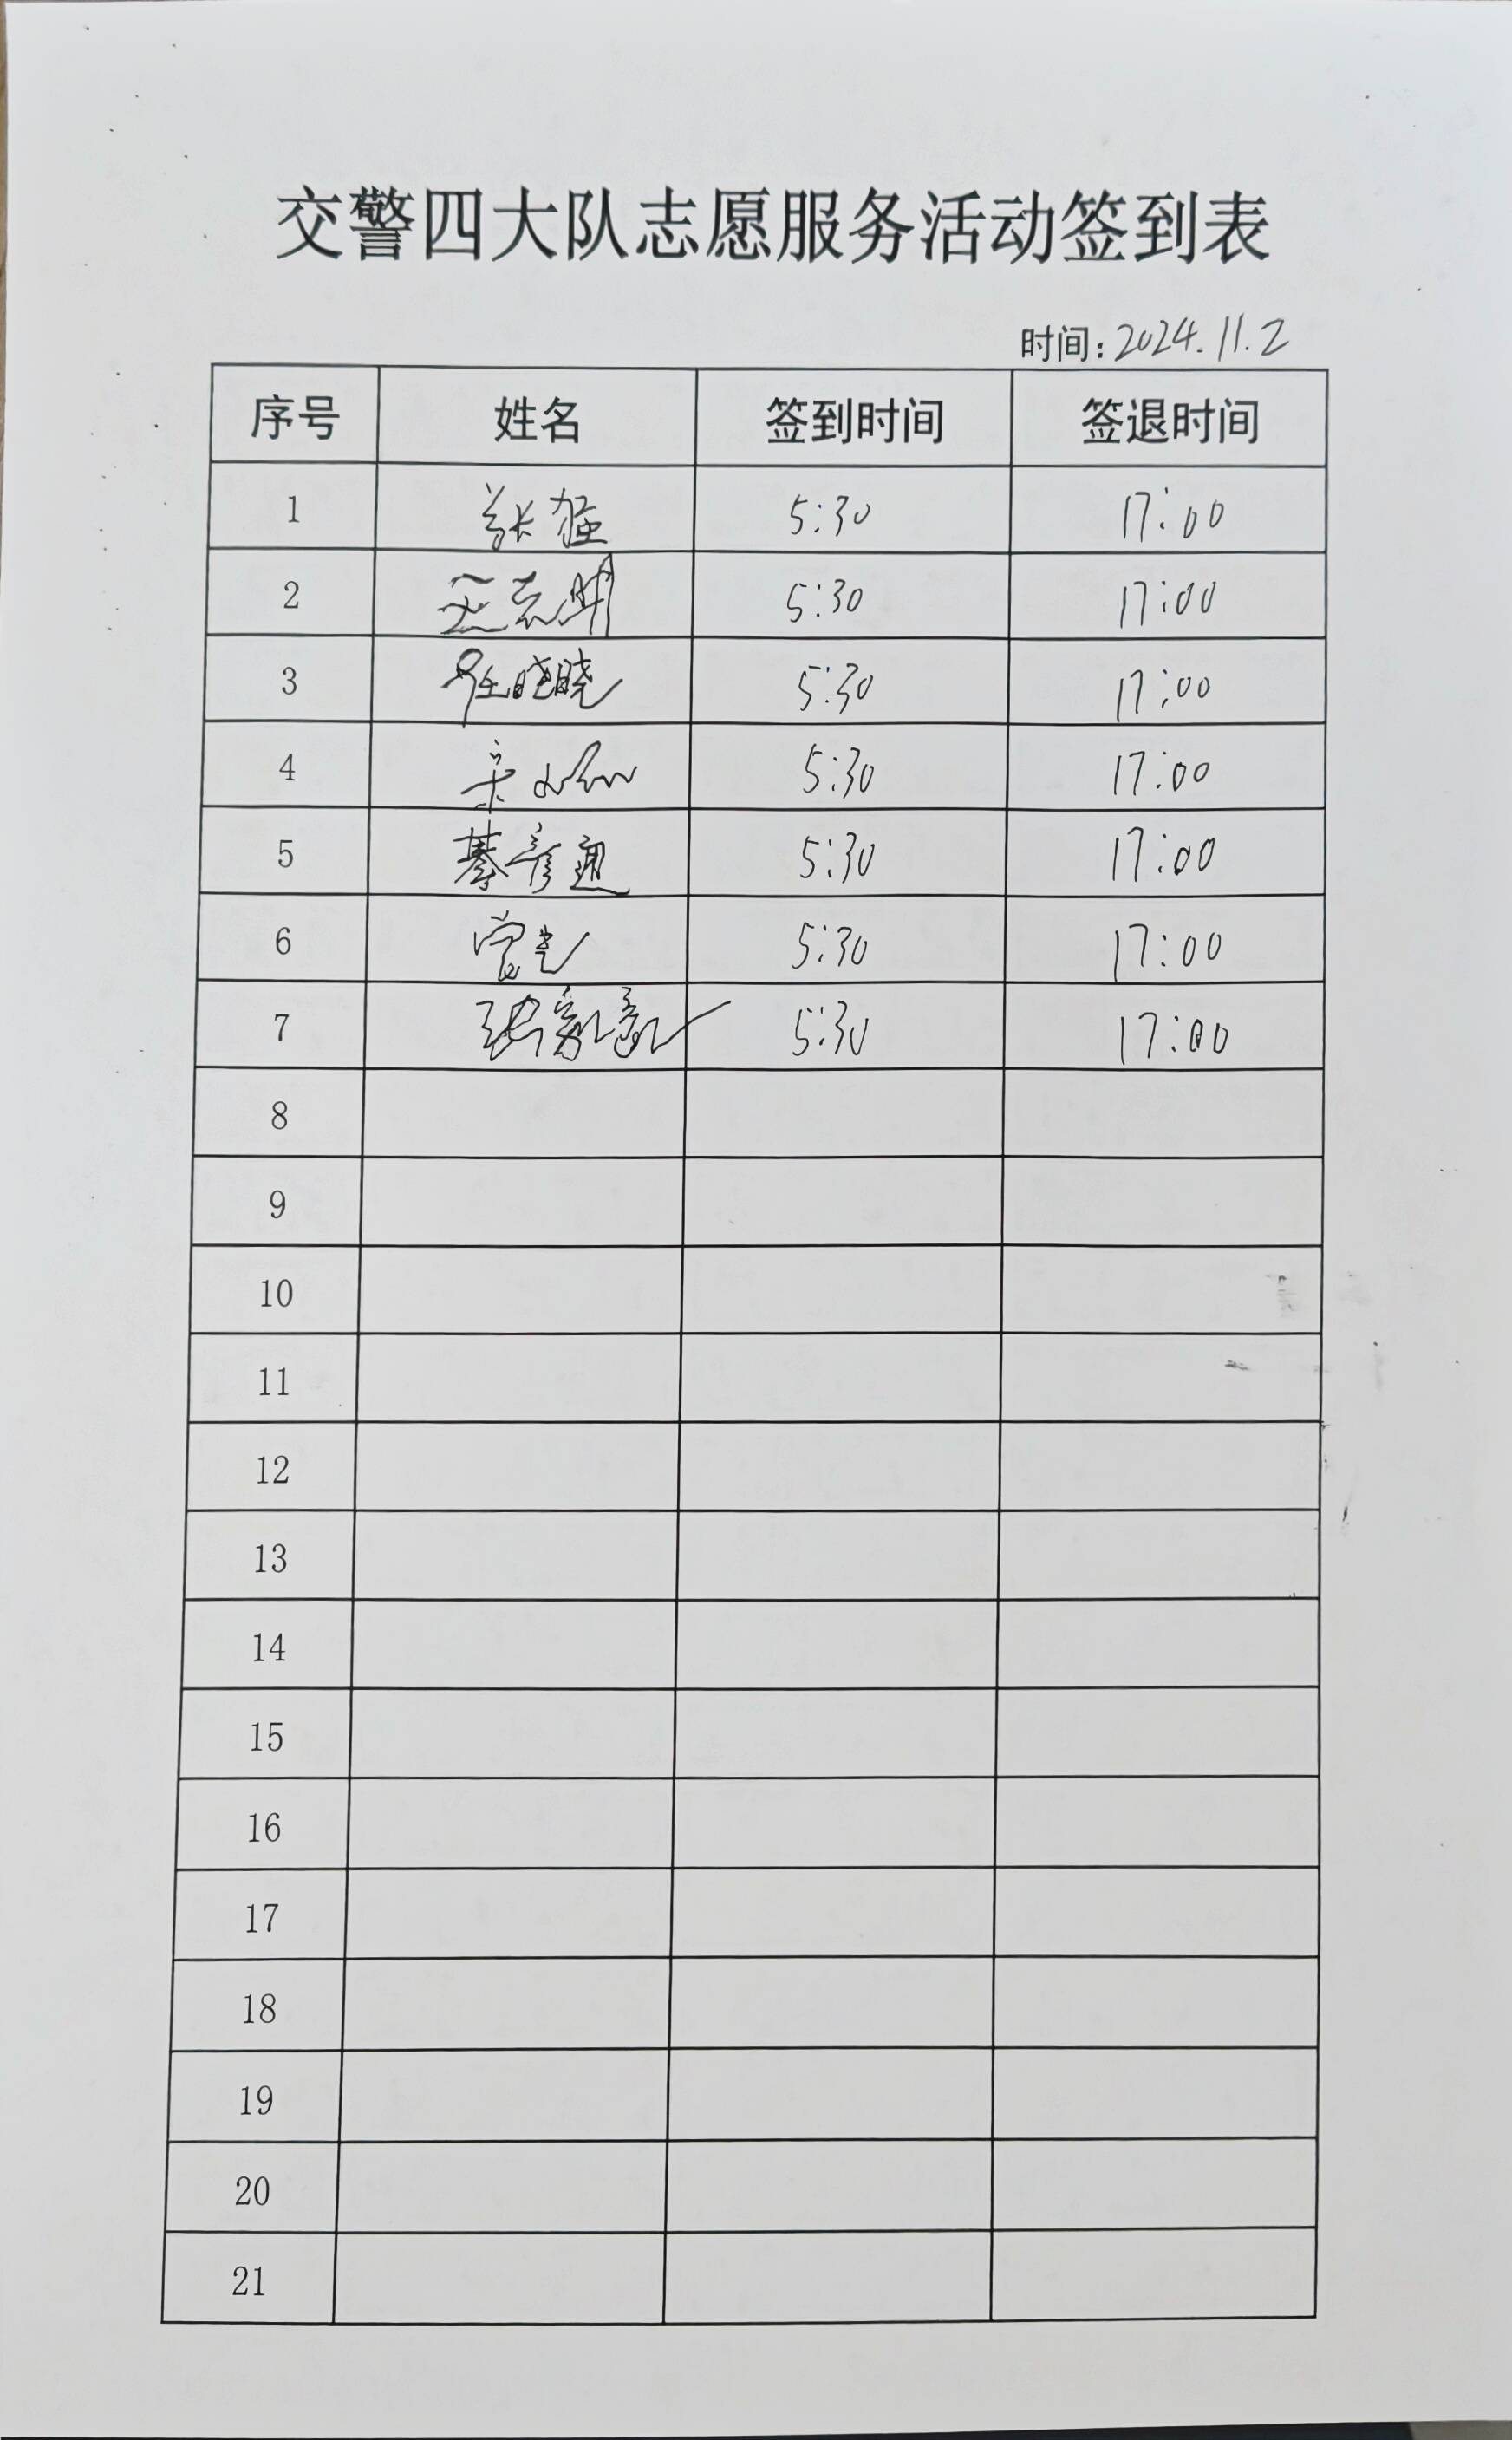 交警四大队志愿服务活动签到表
时间：2024.11.2
序号 姓名 签到时间 签退时间
1 张 5:30 17:00
2 王志明 5:30 17:00
3 任晓晓 5:30 17:00
4 宋 5:30 17:00
5 綦彦通 5:30 17:00
6 5:30 17:00
7 张 5:30 17:00
8
9
10
11
12
13
14
15
16
17
18
19
20
21